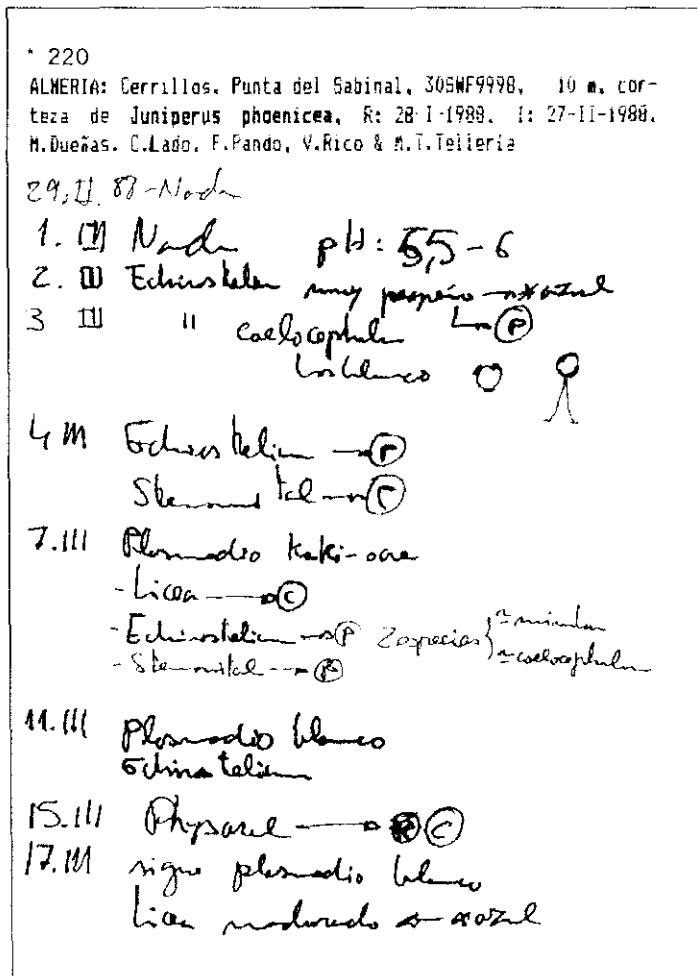 * 220
ALMERIA: Cerrillos. Punta del Sabinal, 30SWF9998, 10 m, cor-
teza de Juniperus phoenicea, R: 28-I-1988. I: 27-II-1988.
M.Dueñas. C.Lado, F.Pando, V.Rico & M.T.Tellería
29.II.88 - Nada
1. III Nada pH: 5,5 - 6
2. III Echinostelium muy pequeño → * azul
3 III " coelocephalum → P
blanco
4 III Echinostelium → P
Stemonital →
7.III Plasmodio kaki-ocre
- Licea → C
- Echinostelium → P 2 especies } ≃ minutum
≃ coelocephalum
- Stemonital → P
11.III Plasmodio blanco
Echinostelium
15.III Physaral → C
17.III sigue plasmodio blanco
Licea madurado * azul